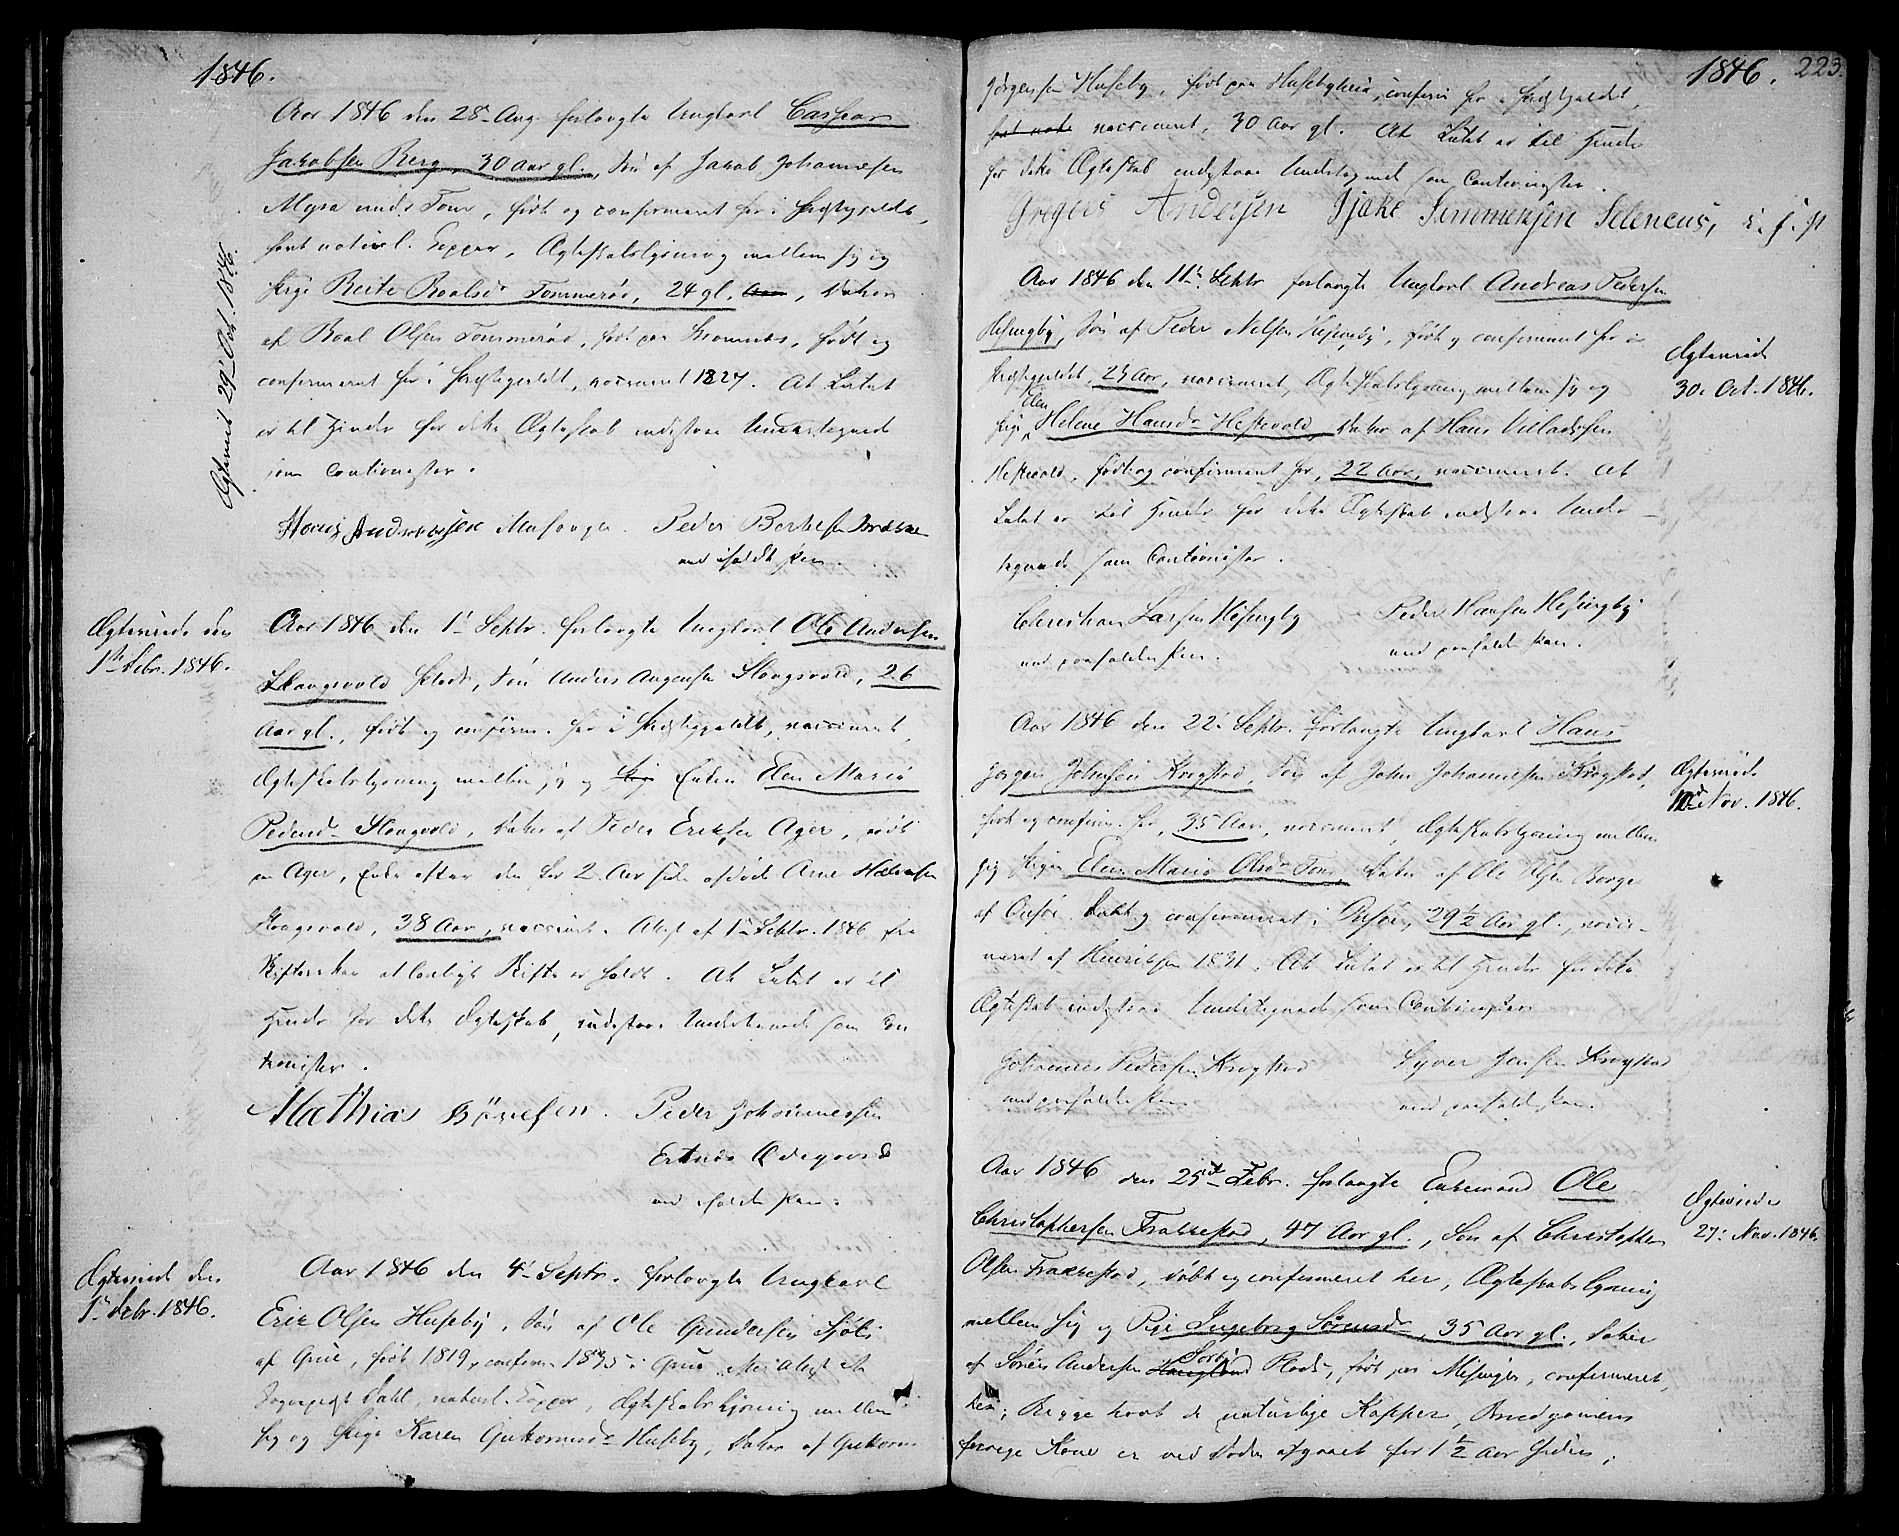 1846.
Aar 1846 den 28de Aug. forlangte Ungkarl Casper
Jakobsen Berg, 30 Aar gl., Søn af Jakob Johannesen
Myra under Tom, født og confirmeret her i Præstegjeldet,
havt naturl. Kopper, Ægteskabslysning mellem sig og
Pige Berte Roalsd. Tommerød, 24 gl. Aar, Datter
af Roal Olsen Tommerød, født paa , født og
confirmeret her i Præstegjeldet, vaccineret 1827. At Intet
er til Hinder for dette Ægteskab indestaae Undertegnede
som Cautionister.
Ægteviet 29de Oct. 1846.
Hans Andersen Peder
med iholdt Pen.
Ægteviede den
1ste Febr. 1846.
Aar 1846 den 1ste Septr. forlangte Ungkarl Ole Andersen
Skougsvold , Søn Anders Skougsvold, 26
Aar gl., født og confirm. her i Præstegjeldet, vaccineret,
Ægteskabslysning mellem sig og Pige Enken Elen Maria
Pedersd. Skougsvold, Datter af Peder Eriksen Ager, født
paa Ager, Enke efter den for 2 Aar siden afdøde Arne Halvorsen
Skougsvold, 38 Aar, vaccineret. Attest af 1ste Septr. 1846 fra
Skifteretten at lovligt Skifte er holdt. At Intet er til
Hinder for dette Ægteskab, indestaae Undertegnede som Cau
tionister.
Mathias Börresen. Peder Johannessen
Ødegaard
med iholdt Pen.
Ægteviede den
1ste Febr. 1846.
Aar 1846 den 4de Septr. forlangte Ungkarl
Eric Olsen Huseby, Søn af Ole Gundersen
af Grue, født 1819, confirm. 1835 i Grue Attest
Dahl, naturl. Kopper, Ægteskabslysning mellem
sig og Pige Karen Guttormsd. Huseby, Datter af Guttorm
1846. 223.
Jörgensen Huseby, født paa Husebyheia, confirm. her i Præstegjeldet,
havt nat. vaccineret, 30 Aar gl. At Intet er til Hinder
for dette Ægteskab indestaae Undertegnede som Cautionister.
Gregers Andersen Gjøke Simmensen Selencus,
Aar 1846 den 11te Septr. forlangte Ungkarl Andreas Pedersen
Hesingby, Søn af Peder Nelsen Hesingby, født og confirmeret her i
Præstegjeldet, 25 Aar, vaccineret, Ægteskabslysning mellem sig og
Elen
Pige Helene Hansd. Hestevold, Datter af Hans Villadssen
Hestevold, født og confirmeret her, 22 Aar, vaccineret. At
Intet er til Hinder for dette Ægteskab indestaae Under-
tegnede som Cautionister.
Ægteviede
30. Oct. 1846.
Christian Larsen Hesingby Peder Hansen Hesingby
med paaholden Pen. med paaholden Pen.
Aar 1846 den 22de Septr. forlangte Ungkarl Hans
Jørgen Johnsen Krogstad, Søn af John Johannesen Krogstad,
født og confirm. her, 35 Aar, vaccineret, Ægteskabslysning mellem
sig Pigen Elen Maria Olsd. Tom, Datter af Ole Olsen Borge
af Onsøe, født og confirmeret i Onsøe, 29 1/2 Aar gl., vacci-
neret af Henriksen 1831. At Intet er til Hinder for dette
Ægteskab indestaae Undertegnede som Cautionister.
Ægteviede
10de Nov. 1846.
Johannes Pedersen Krogstad Syver Jensen Krogstad
med paaholden Pen. med paaholden Pen.
Aar 1846 den 25de Febr. forlangte Enkemand Ole
Christophersen Frakkestad, 47 Aar gl., Søn af Christopher
Olsen Frakkestad, døbt og confirmeret her, Ægteskabslysning
mellem sig og Pige Ingeborg Sørensd., 35 Aar gl., Datter
Sorby
af Søren Andersen Haugland Plads, født paa Misingen, confirmeret,
her, Begge havt de naturlige Kopper, Brudgomens
forrige Kone er ved Døden afgaaet for 1 1/2 Aar siden,
Ægteviede
27. Nov. 1846.